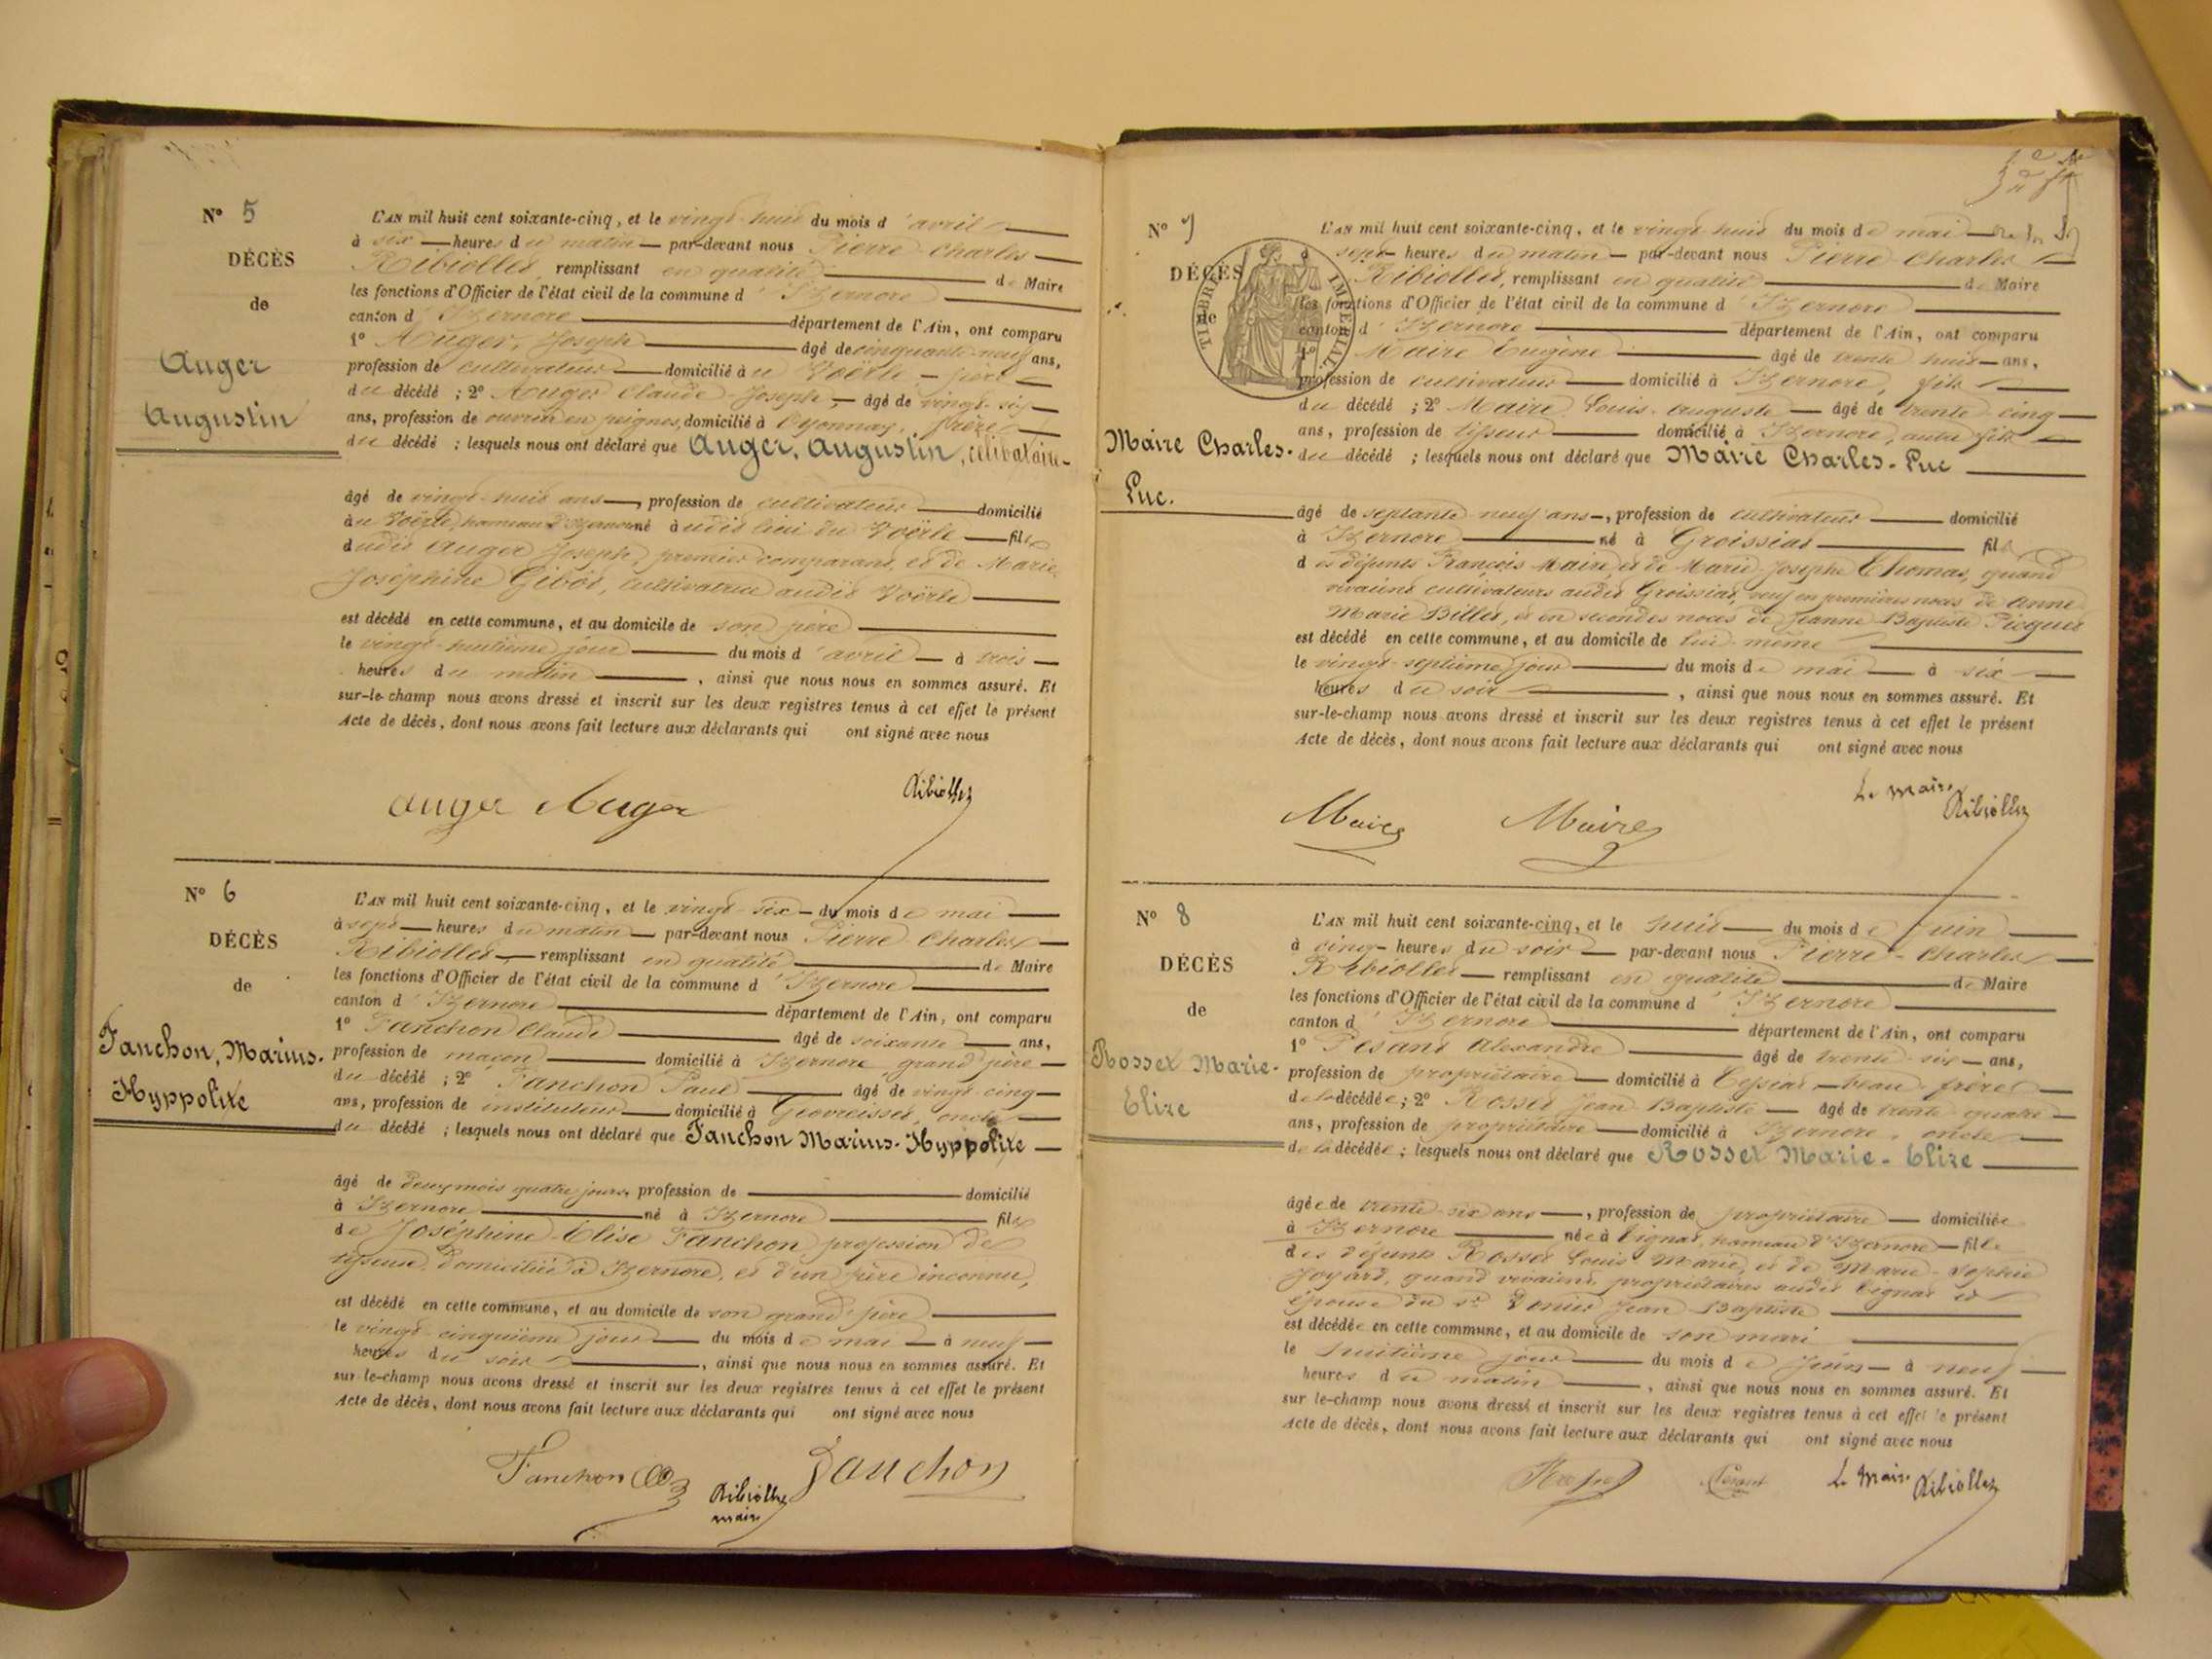 N° 5
DÉCÈS
de
Auger
Augustin
L'AN mil huit cent soixante-cinq, et le vingt-huit du mois d'avril
à six heures du matin par-devant nous Pierre Charles
Ribiollet, remplissant en qualité de Maire
les fonctions d'Officier de l'état civil de la commune d'Izernore
canton d'Izernore département de l'Ain, ont comparu
1° Auger, Joseph âgé de cinquante-neuf ans,
profession de cultivateur domicilié à u Voërle père
du décédé ; 2° Auger Claude Joseph, âgé de vingt-six
ans, profession de ouvrier en peignes, domicilié à Oyonnax, frère
du décédé ; lesquels nous ont déclaré que Auger, Augustin, célibataire
âgé de vingt-huit ans, profession de cultivateur domicilié
à u Voërle, hameau d'Izernore né à udit lieu du Voërle fils
dudit Auger Joseph, premier comparant, et de Marie
Joséphine Gibot, cultivatrice audit Voërle
est décédé en cette commune, et au domicile de son père
le vingt-huitième jour du mois d'avril à trois
heures du matin, ainsi que nous nous en sommes assuré. Et
sur-le-champ nous avons dressé et inscrit sur les deux registres tenus à cet effet le présent
Acte de décès, dont nous avons fait lecture aux déclarants qui ont signé avec nous
auger Auger Ribiollet
N° 6
DÉCÈS
de
Fanchon, Marius-
Hyppolite
L'AN mil huit cent soixante-cinq, et le vingt-six du mois de mai
à sept heures du matin par-devant nous Pierre Charles
Ribiollet remplissant en qualité de Maire
les fonctions d'Officier de l'état civil de la commune d'Izernore
canton d'Izernore département de l'Ain, ont comparu
1° Fanchon Claude âgé de soixante ans,
profession de maçon domicilié à Izernore, grand père
du décédé ; 2° Fanchon Paul âgé de vingt-cinq
ans, profession de instituteur domicilié à Géovreisset, oncle
du décédé ; lesquels nous ont déclaré que Fanchon Marius-Hyppolite
âgé de deux mois quatre jours, profession de domicilié
à Izernore né à Izernore fils
de Joséphine Élise Fanchon profession de
tisseuse, domiciliée à Izernore, et d'un père inconnu,
est décédé en cette commune, et au domicile de son grand père
le vingt-cinquième jour du mois de mai à neuf
heures du soir, ainsi que nous nous en sommes assuré. Et
sur-le-champ nous avons dressé et inscrit sur les deux registres tenus à cet effet le présent
Acte de décès, dont nous avons fait lecture aux déclarants qui ont signé avec nous
Fanchon Ribiollet Fanchon
maire
N° 7
DÉCÈS
de
TIMBRE IMPÉRIAL
Maire Charles-
Luc.
L'AN mil huit cent soixante-cinq, et le vingt-huit du mois de mai
à sept heures du matin par-devant nous Pierre Charles
Ribiollet, remplissant en qualité de Maire
les fonctions d'Officier de l'état civil de la commune d'Izernore
canton d'Izernore département de l'Ain, ont comparu
1° Maire Eugène âgé de trente-huit ans,
profession de cultivateur domicilié à Izernore, fils
du décédé ; 2° Maire Louis-Auguste âgé de trente-cinq
ans, profession de tisseur domicilié à Izernore, autre fils
du décédé ; lesquels nous ont déclaré que Maire Charles-Luc
âgé de septante-neuf ans, profession de cultivateur domicilié
à Izernore né à Groissiat fils
des défunts François Maire, et de Marie-Josephe Thomas, quand
vivaient cultivateurs audit Groissiat, veuf en premières noces de Anne
Marie Billet, et en secondes noces de Jeanne-Baptiste Picquet
est décédé en cette commune, et au domicile de lui-même
le vingt-septième jour du mois de mai à six
heures du soir, ainsi que nous nous en sommes assuré. Et
sur-le-champ nous avons dressé et inscrit sur les deux registres tenus à cet effet le présent
Acte de décès, dont nous avons fait lecture aux déclarants qui ont signé avec nous
Maire Maire Le maire Ribiollet
N° 8
DÉCÈS
de
Rosset Marie-
Elize
L'AN mil huit cent soixante-cinq, et le huit du mois de Juin
à cinq heures du soir par-devant nous Pierre-Charles
Ribiollet remplissant en qualité de Maire
les fonctions d'Officier de l'état civil de la commune d'Izernore
canton d'Izernore département de l'Ain, ont comparu
1° Pesant Alexandre âgé de trente-six ans,
profession de propriétaire domicilié à Ceyssiat beau-frère
de la décédée ; 2° Rosset Jean-Baptiste âgé de trente-quatre
ans, profession de propriétaire domicilié à Izernore, oncle
de la décédée ; lesquels nous ont déclaré que Rosset Marie-Elize
âgée de trente-six ans, profession de propriétaire domiciliée
à Izernore née à Tignat, hameau d'Izernore fille
des défunts Rosset Louis-Marie, et de Marie-Sophie
Joyard, quand vivaient propriétaires audit Tignat et
épouse du sr Jean-Baptiste
est décédée en cette commune, et au domicile de son mari
le huitième jour du mois de Juin à neuf
heures du matin, ainsi que nous nous en sommes assuré. Et
sur le-champ nous avons dressé et inscrit sur les deux registres tenus à cet effet le présent
Acte de décès, dont nous avons fait lecture aux déclarants qui ont signé avec nous
Rosset Pesant Le Maire Ribiollet